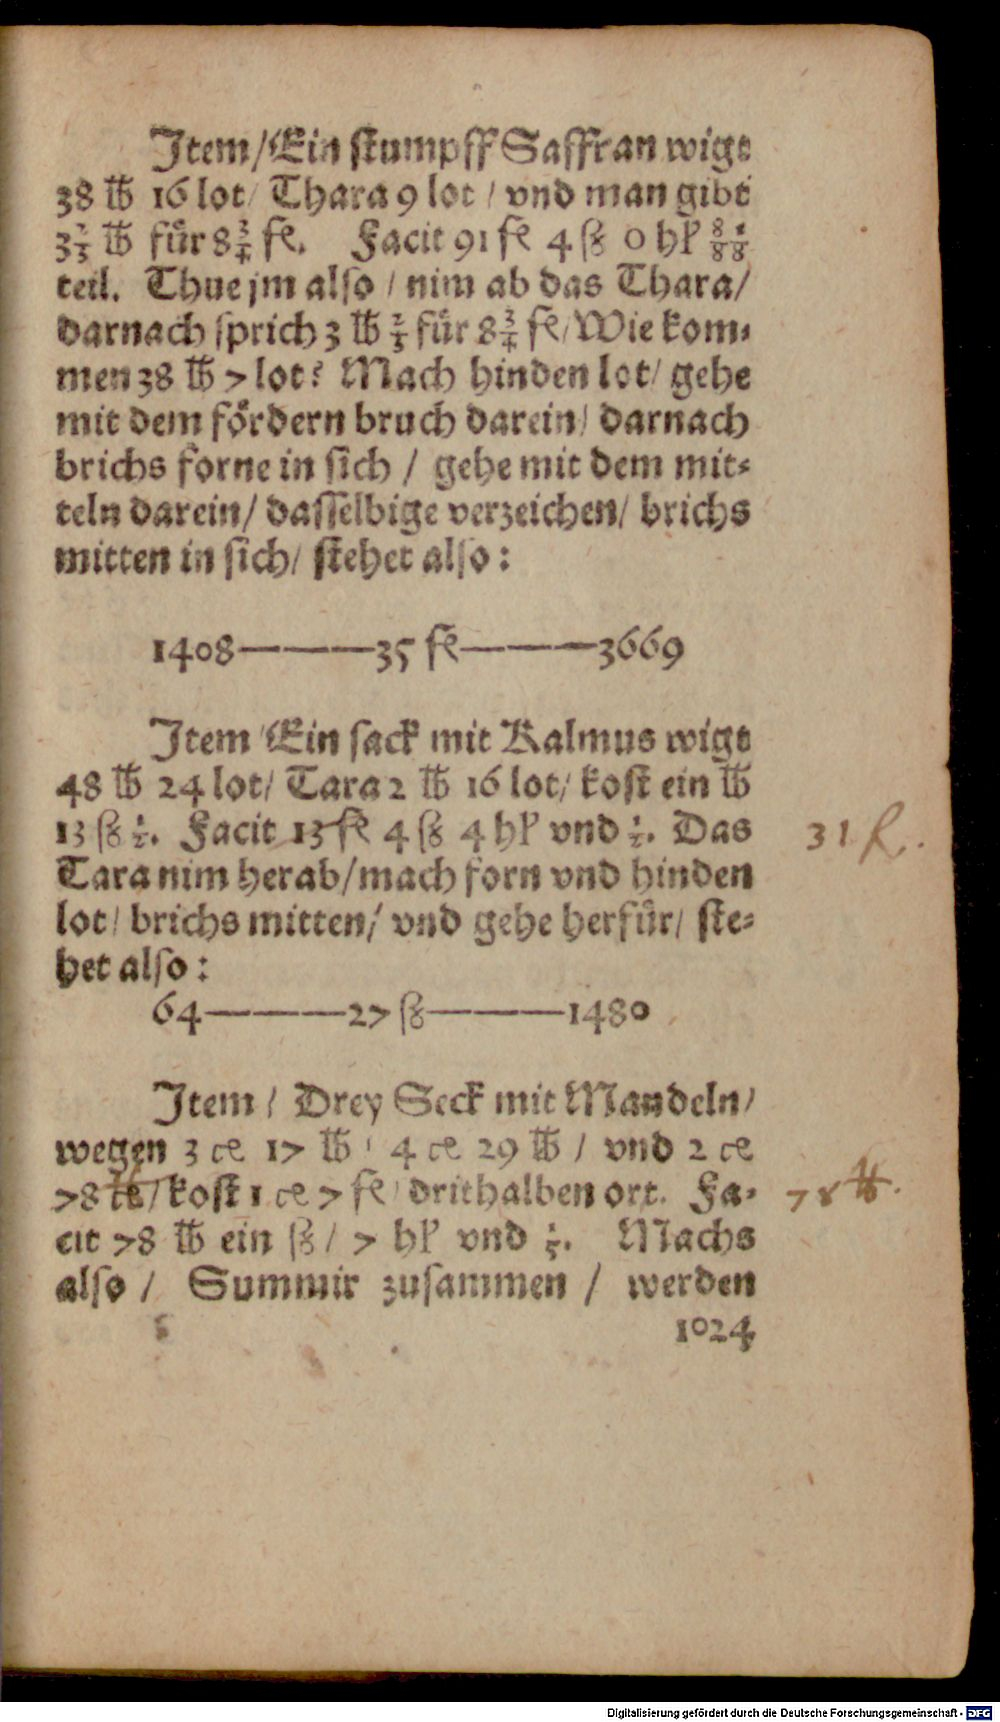 Jtem/Ein stumpff Saffran wigt
38 ℔ 16 lot/ Thara 9 lot / vnd man gibt
3⅔ ℔ für 8¾ fl. Facit 91 fl 4 ß 0 hl
teil. Thue jm also / nim ab das Thara/
darnach sprich 3 ℔ ⅔ für 8¾ fl/ Wie kom⸗
men 38 ℔ 7 lot? Mach hinden lot/ gehe
mit dem fördern bruch darein/ darnach
brichs forne in sich / gehe mit dem mit⸗
teln darein/ dasselbige verzeichen/ brichs
mitten in sich/ stehet also:
1408———35 fl———3669
Jtem/Ein sack mit Kalmus wigt
48 ℔ 24 lot/ Tara 2 ℔ 16 lot/ kost ein ℔
13 ß ½. Facit 13 fl 4 ß 4 hl vnd ½. Das
31 fl.
Tara nim herab/mach forn vnd hinden
lot/ brichs mitten/ vnd gehe herfür/ ste⸗
het also:
64———27 ß———1480
Jtem / Drey Seck mit Mandeln/
wegen 3 ce 17 ℔ / 4 ce 29 ℔ / vnd 2 ce
78 ce/ kost 1 ce 7 fl/ drithalben ort. Fa⸗
78 ℔.
cit 78 ℔ ein ß/ 7 hl vnd ⅕. Machs
also / Summir zusammen / werden
1024
Digitalisierung gefördert durch die Deutsche Forschungsgemeinschaft - DFG